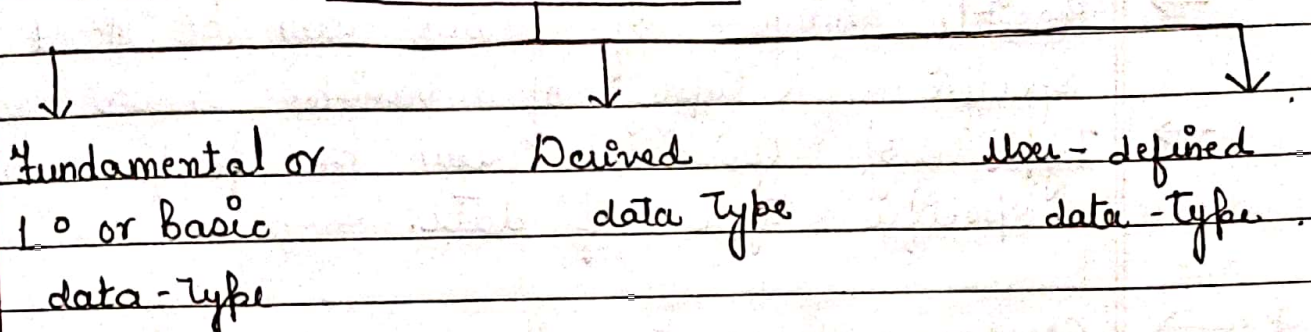 Fundamental or
1° or Basic
data-Type
Derived
data Type
User-defined
data-Type.